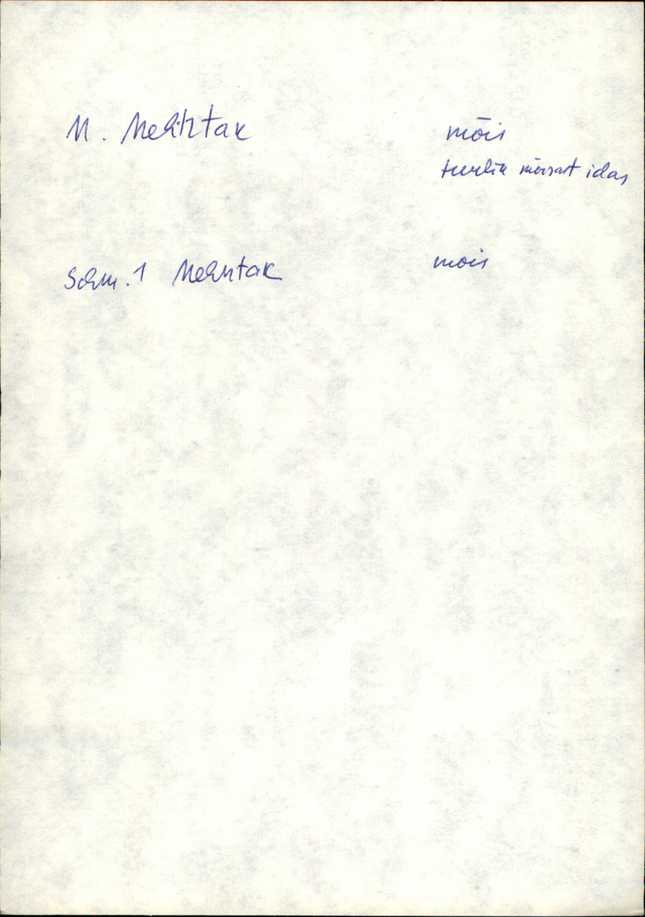 M. Mehntak mõis
tuulik mõisast idas
Schm. 1 Mehntak mois